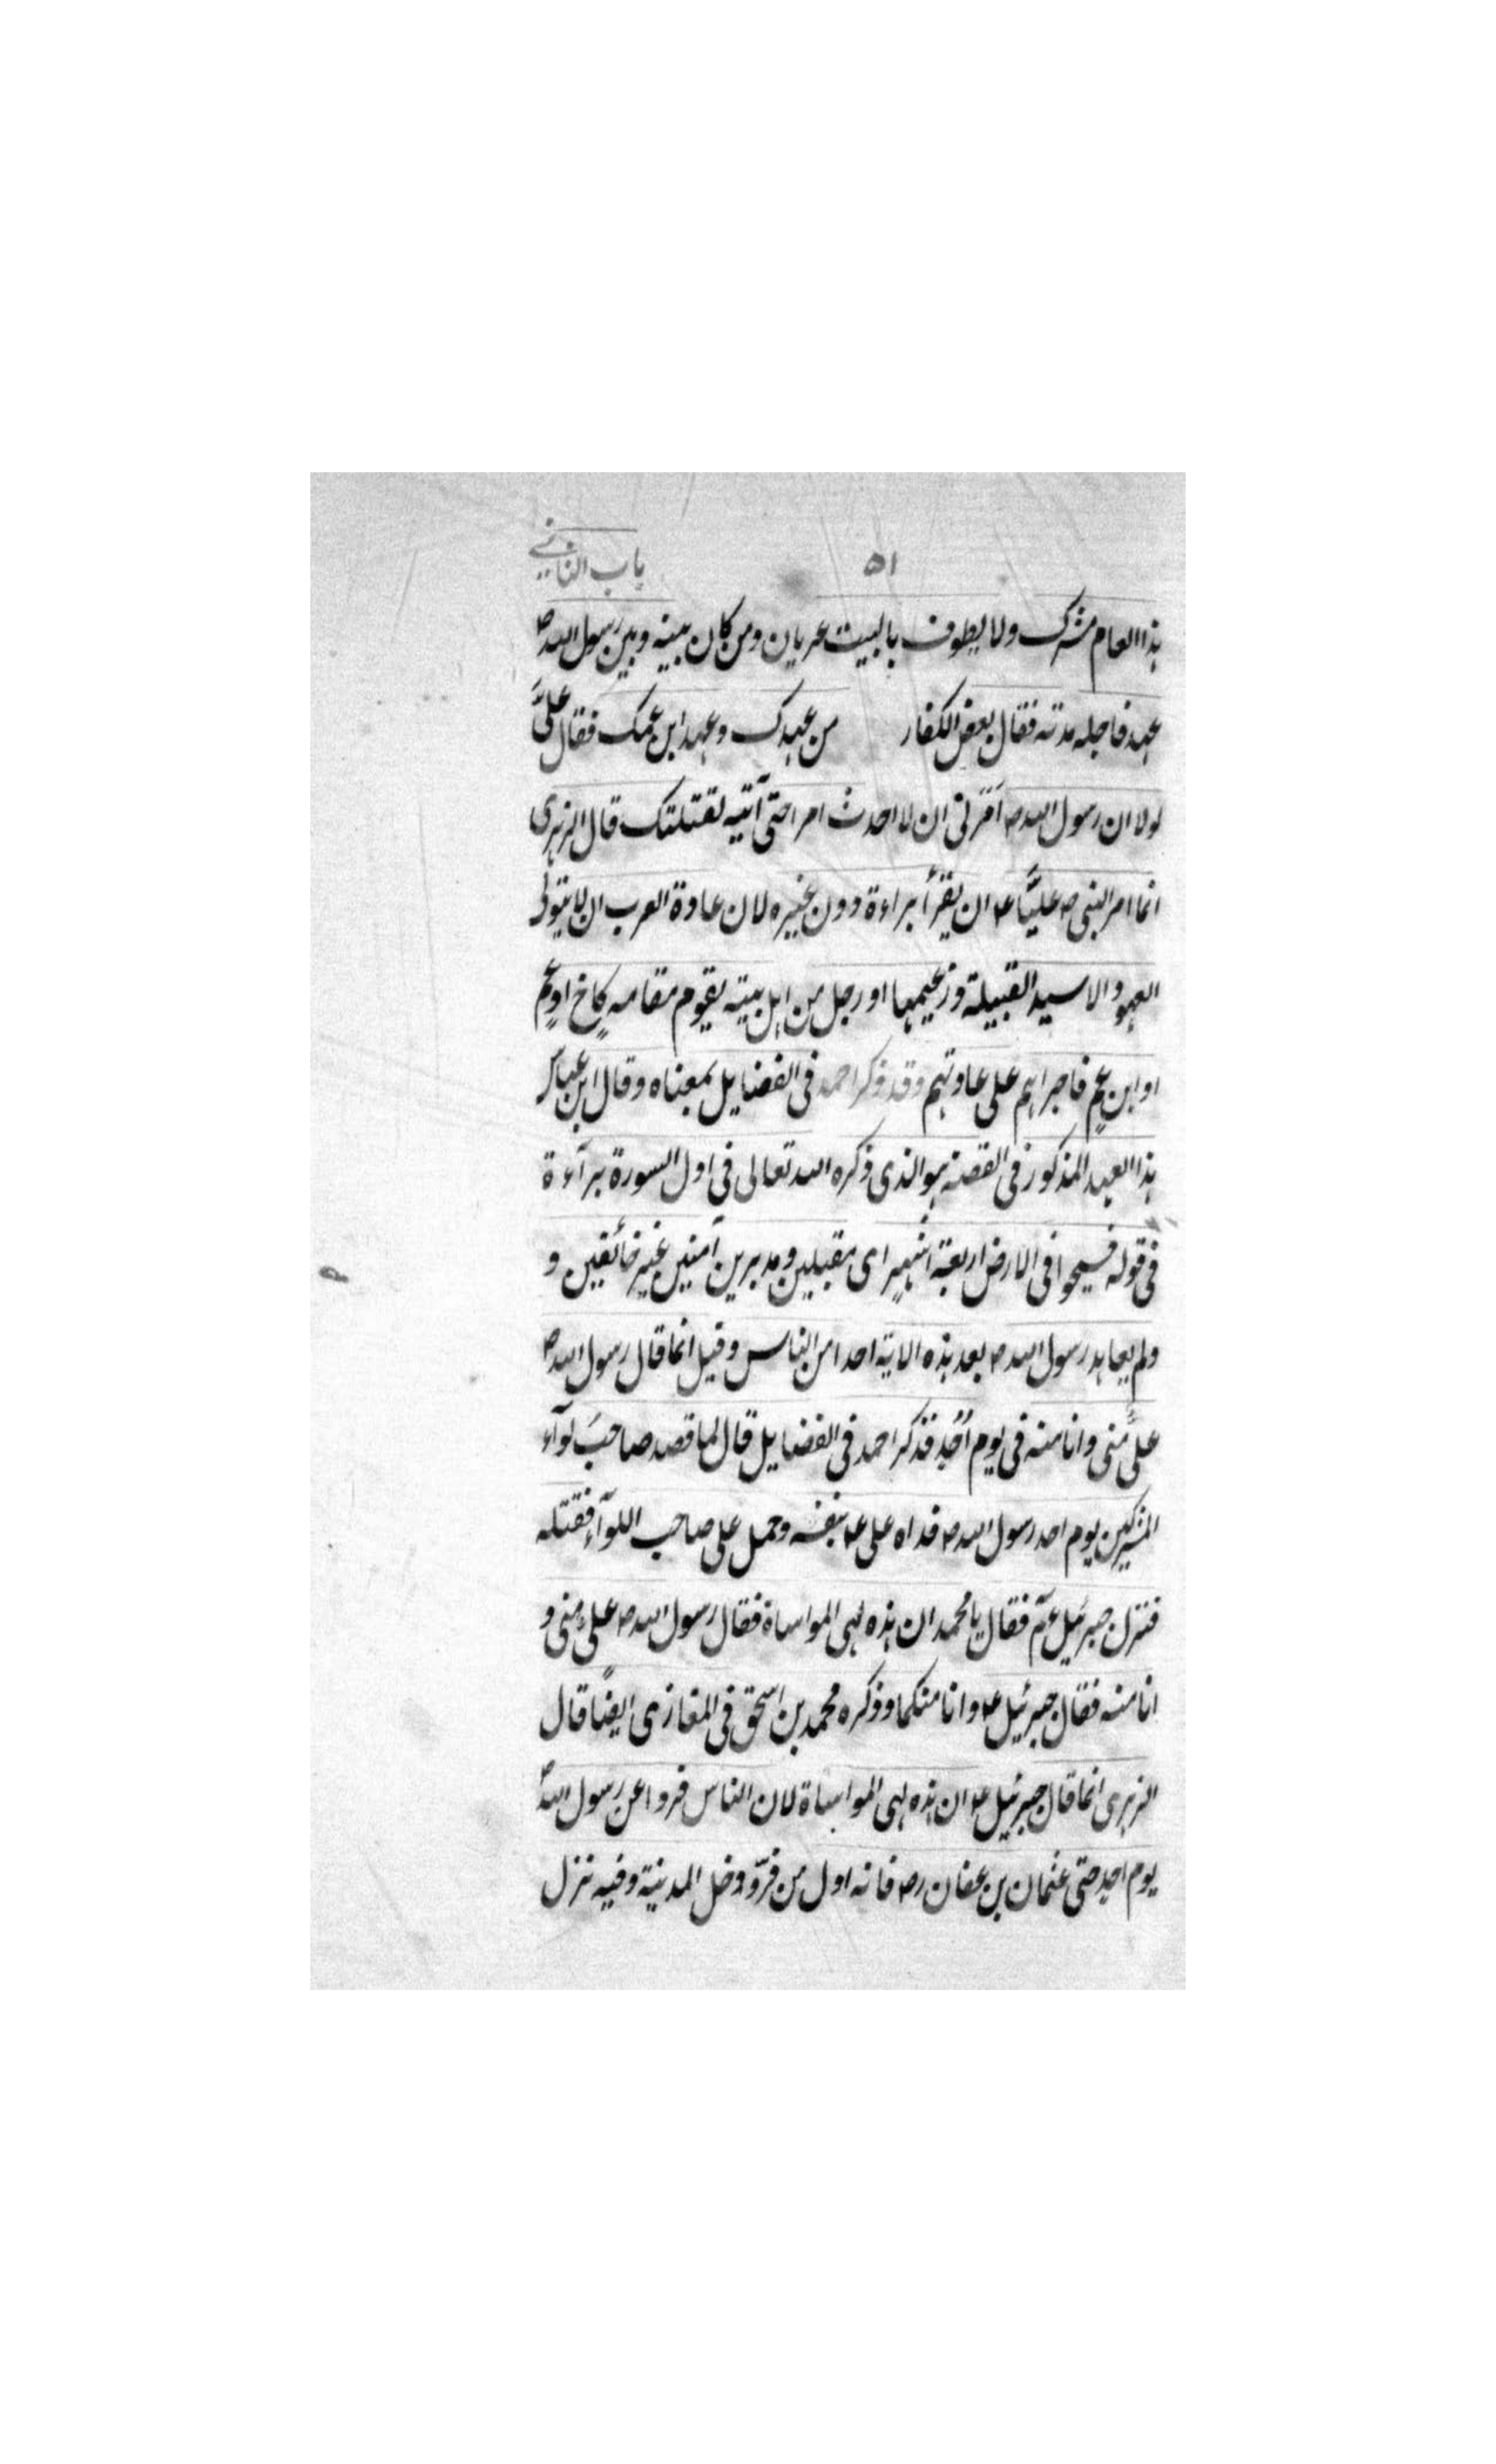 ٥١ باب الثاني
هذا العام مشرك ولا يطوف بالبيت عريان ومن كان بينه وبين رسول الله ص
عهد فاجله مدته فقال بعض الكفار من عهدك وعهد ابن عمك فقال علىّ
لولا ان رسول الله ص امرنى ان لا احدث امرا حتى آتيه لقتلتك قال الزهرى
انما امر النبى ص عليًّا ع ان يقرأ براءة دون غيره لان عادة العرب ان لا يتولى
العهود الا سيد القبيلة وزعيمها او رجل من اهل بيته يقوم مقامه كاخ او عم
او ابن عم فاجراهم على عادتهم وقد ذكر احمد فى الفضايل بمعناه وقال ابن عباس
هذا العهد المذكور فى القصة هو الذى ذكره الله تعالى فى اول السورة برآءة
فى قوله فسيحوا فى الارض اربعة اشهر اى مقبلين ومدبرين آمنين غير خائفين و
ولم يعاهد رسول الله ص بعد هذه الاية احدا من الناس وقيل انما قال رسول الله ص
علىّ منى وانا منه فى يوم اُحُد فذكر احمد فى الفضايل قال لما قصد صاحبَ لوآء
المشركين يوم احد رسول الله ص فداه على ع بنفسه وحمل على صاحب اللوآء فقتله
فنزل جبرئيل عم فقال يا محمد ان هذه لهى المواساة فقال رسول الله ص علىّ منى و
انا منه فقال جبرئيل ع وانا منكما وذكره محمد بن اسحق فى المغازى ايضًا قال
الزهرى انما قال جبرئيل ع ان هذه لهى المواساة لان الناس فروا عن رسول الله ص
يوم احد حتى عثمان بن عفان رض فانه اول من فرّ ودخل المدينة وفيه نزل